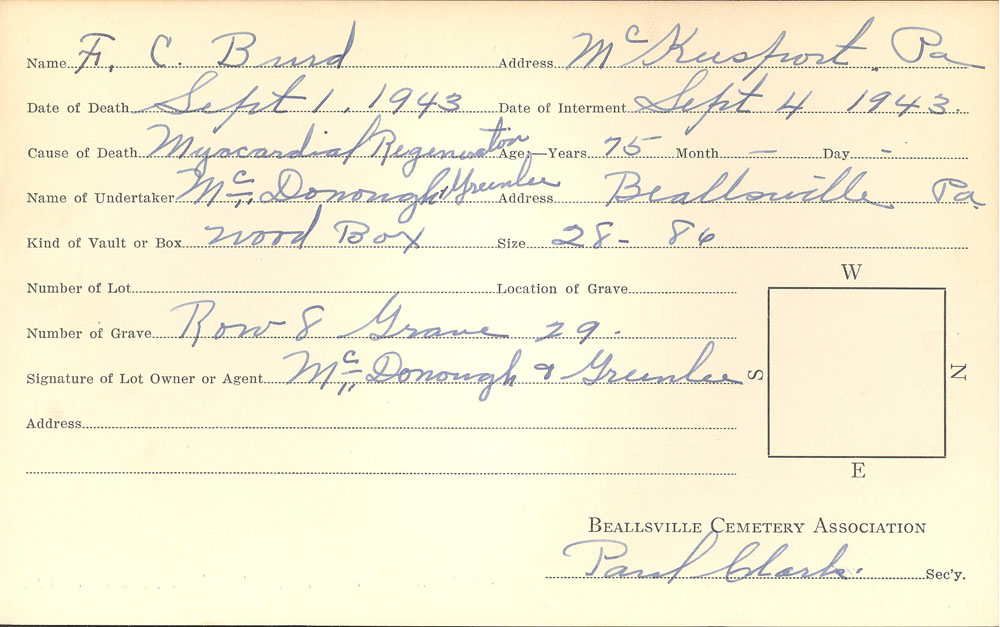 Name F. C. Burd Address McKeesport, Pa
Date of Death Sept 1, 1943 Date of Interment Sept 4 1943.
Cause of Death Myocardial Regeneration Age:—Years 75 Month – Day -
Name of Undertaker Mc Donough & Greenlee Address Beallsville, Pa.
Kind of Vault or Box Wood Box Size 28 - 86
Number of Lot Location of Grave
Number of Grave Row 8 Grave 29.
Signature of Lot Owner or Agent Mc Donough & Greenlee
Address
W
S
N
E
Beallsville Cemetery Association
Paul Clark. Sec'y.